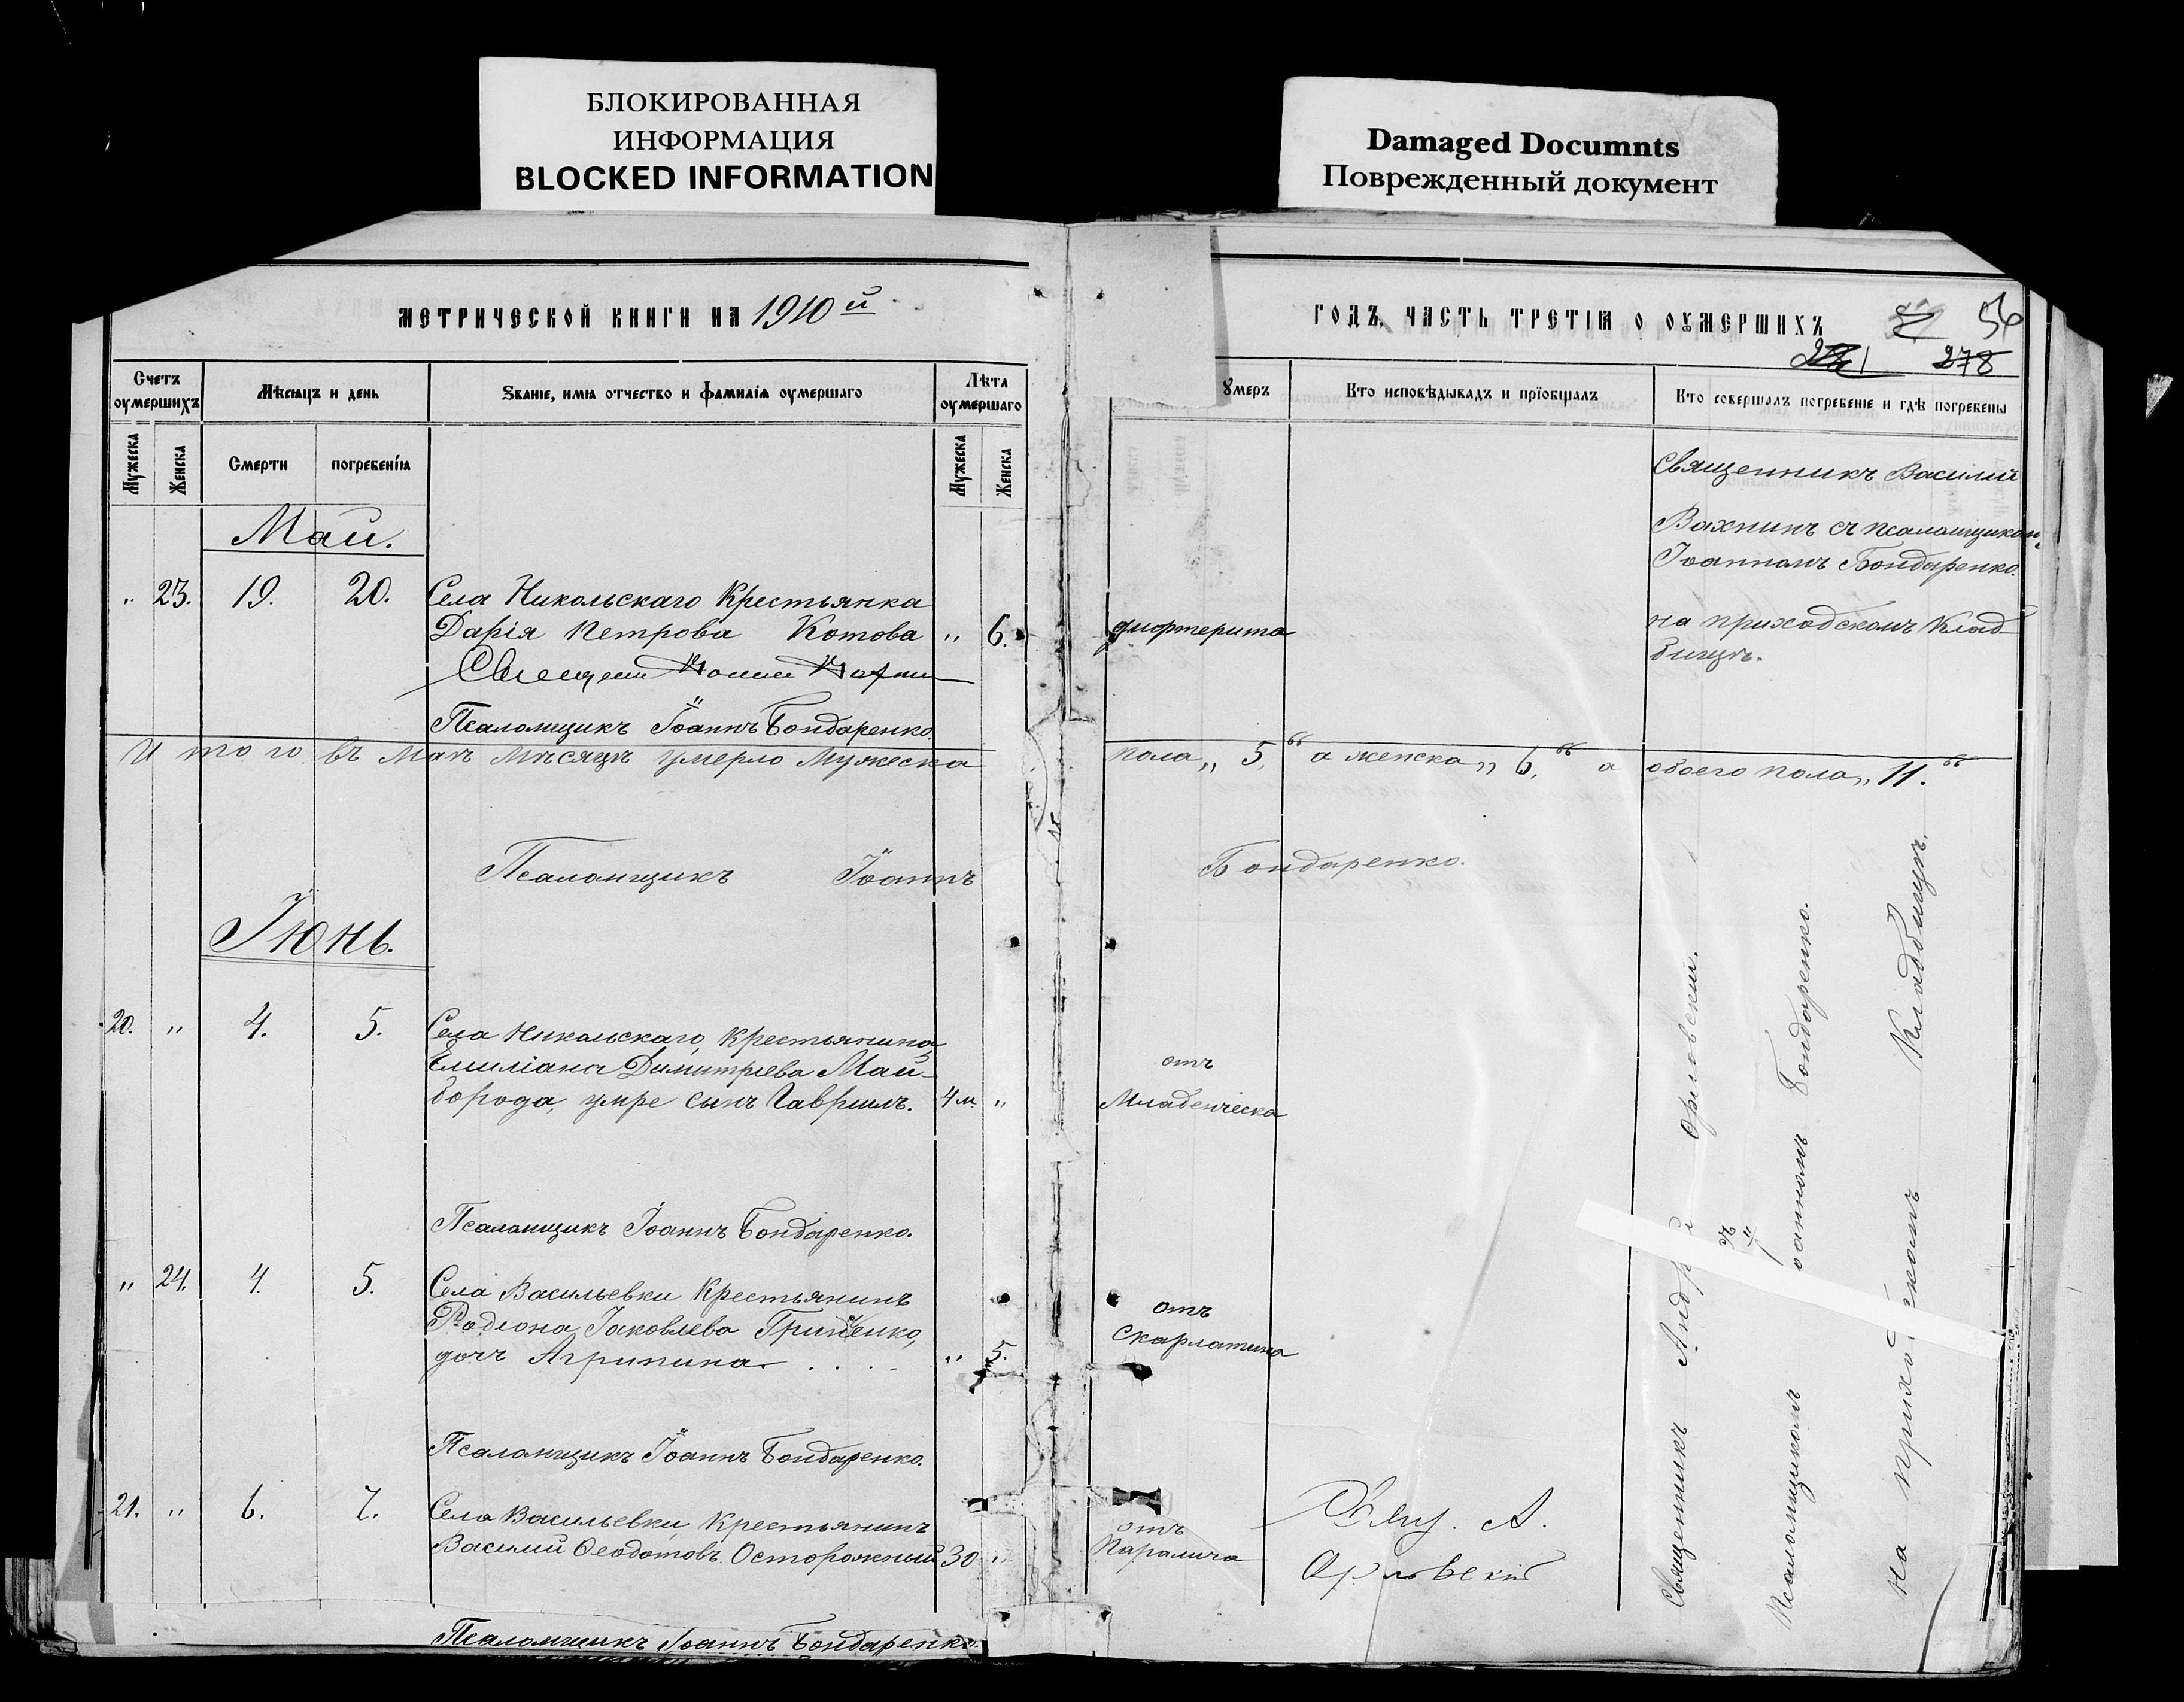 БЛОКИРОВАННАЯ
ИНФОРМАЦИЯ
BLOCKED INFORMATION
Damaged Documnts
Поврежденный документ
МЕТРИЧЕСКОЙ КНИГИ НА 1910 й
Счетъ оумершихъ
Мѣсяцъ и день
Званіе, имя отчество и фамилія оумершаго
Лѣта оумершаго
Мужеска
Женска
Смерти
погребенія
Мужеска
Женска
Май.
" 23. 19. 20. Села Никольскаго Крестьянка
Дарія Петрова Котова " 6.
Псаломщикъ Іоаннъ Бондаренко.
Итого въ Маѣ мѣсяцѣ умерло мужеска
Псаломщикъ Іоаннъ
Іюнь.
20. " 4. 5. Села Никольскаго, Крестьянина
Емиліана Димитріева Май-
борода, умре сынъ Гавріилъ. 4 м. "
Псаломщикъ Іоаннъ Бондаренко.
" 24. 4. 5. Села Васильевки Крестьянинъ
Родіона Іаковлева Гринченко,
дочь Агрипина " 5.
Псаломщикъ Іоаннъ Бондаренко.
21. " 6. 7. Села Васильевки Крестьянинъ
Василий Феодотовъ Осторожный 30 "
Псаломщикъ Іоаннъ Бондаренко.
ГОДЪ, ЧАСТЬ ТРЕТІЯ О ОУМЕРШИХЪ
56
278
умеръ
Кто исповѣдывалъ и пріобщалъ
Кто совершалъ погребеніе и гдѣ погребены
Священникъ Василий
Вахнинъ съ псаломщикомъ
Іоанномъ Бондаренко.
на приходскомъ Клад-
бищѣ.
пола „ 5, " а женска „ 6, " а обоего пола „ 11. "
Бондаренко.
отъ
Младенческа
отъ
Скарлатина
отъ
Паралича
Свящ. А.
Орловскій
Священникъ Андрей Орловский.
съ
Псаломщикомъ Іоанномъ Бондаренко.
на приходскомъ Кладбищѣ.